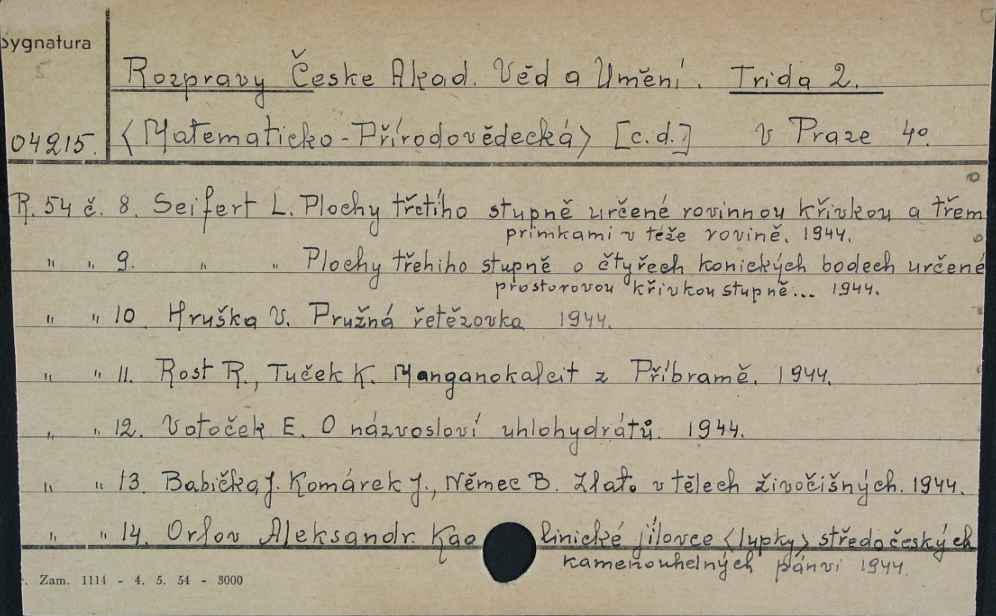 Sygnatura
Rozpravy Česke Akad. Věd a Umění. Trida 2.
04215. <Matematicko-Přírodovědecká> [c.d.] v Praze 4º.
R. 54 č. 8. Seifert L. Plochy třetího stupně určené rovinnou křivkou a třem
primkami v téže rovině. 1944.
" " 9. " " Plochy třehiho stupně o čtyřech konických bodech určené
prostorovou křivkou stupně... 1944.
" " 10 Hruška V. Pružná řetězovka 1944.
" " 11. Rost R., Tuček K. Manganokalcit z Příbramě. 1944.
" " 12. Votoček E. O názvosloví uhlohydrátů. 1944.
" " 13. Babička J. Komárek J., Němec B. Zlato v tělech živočišných. 1944.
" " 14. Orlov Aleksandr. Kao linické jílovce <lupky> středočeských
kamenouhelných pánví 1944.
Zam. 1114 - 4. 5. 54 - 3000